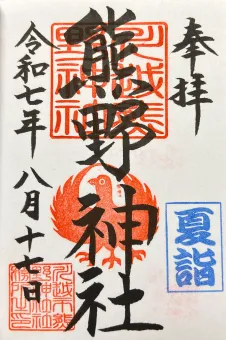 奉拝
熊野神社
令和七年 八月十七日
夏詣